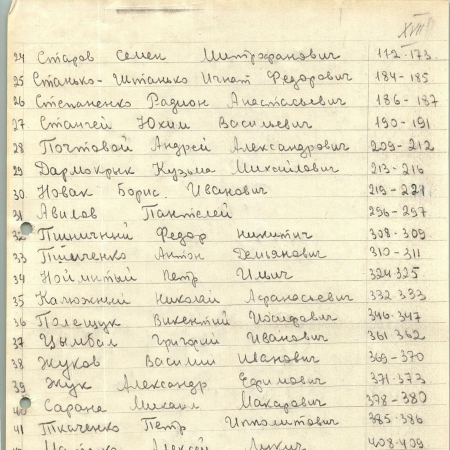 XVIII
24 Старов Семен Митрофанович 112-173
25 Станько-Штанько Игнат Федорович 184-185
26 Степаненко Радион Анастасьевич 186-187
27 Станчей Юхим Васильевич 190-191
28 Почтовой Андрей Александрович 209-212
29 Дармокрык Кузьма Михайлович 213-216
30 Новак Борис Иванович 219-221
31 Авилов Пантелей 296-297
32 Пшничний Федор Никитич 308-309
33 Антон Демянович 310-311
34 Ноймитый Петр Ильич 324-325
35 Калюжний Николай Афанасьевич 332-333
36 Полещук Викентий 346-347
37 Цымбал Григорий Иванович 361-362
38 Жуков Василий Иванович 369-370
39 Жук Александр Ефимович 371-373
40 Сарана Михаил Макарович 378-380
41 Ткаченко Петр Ипполитович 385-386
Алексей 408-409